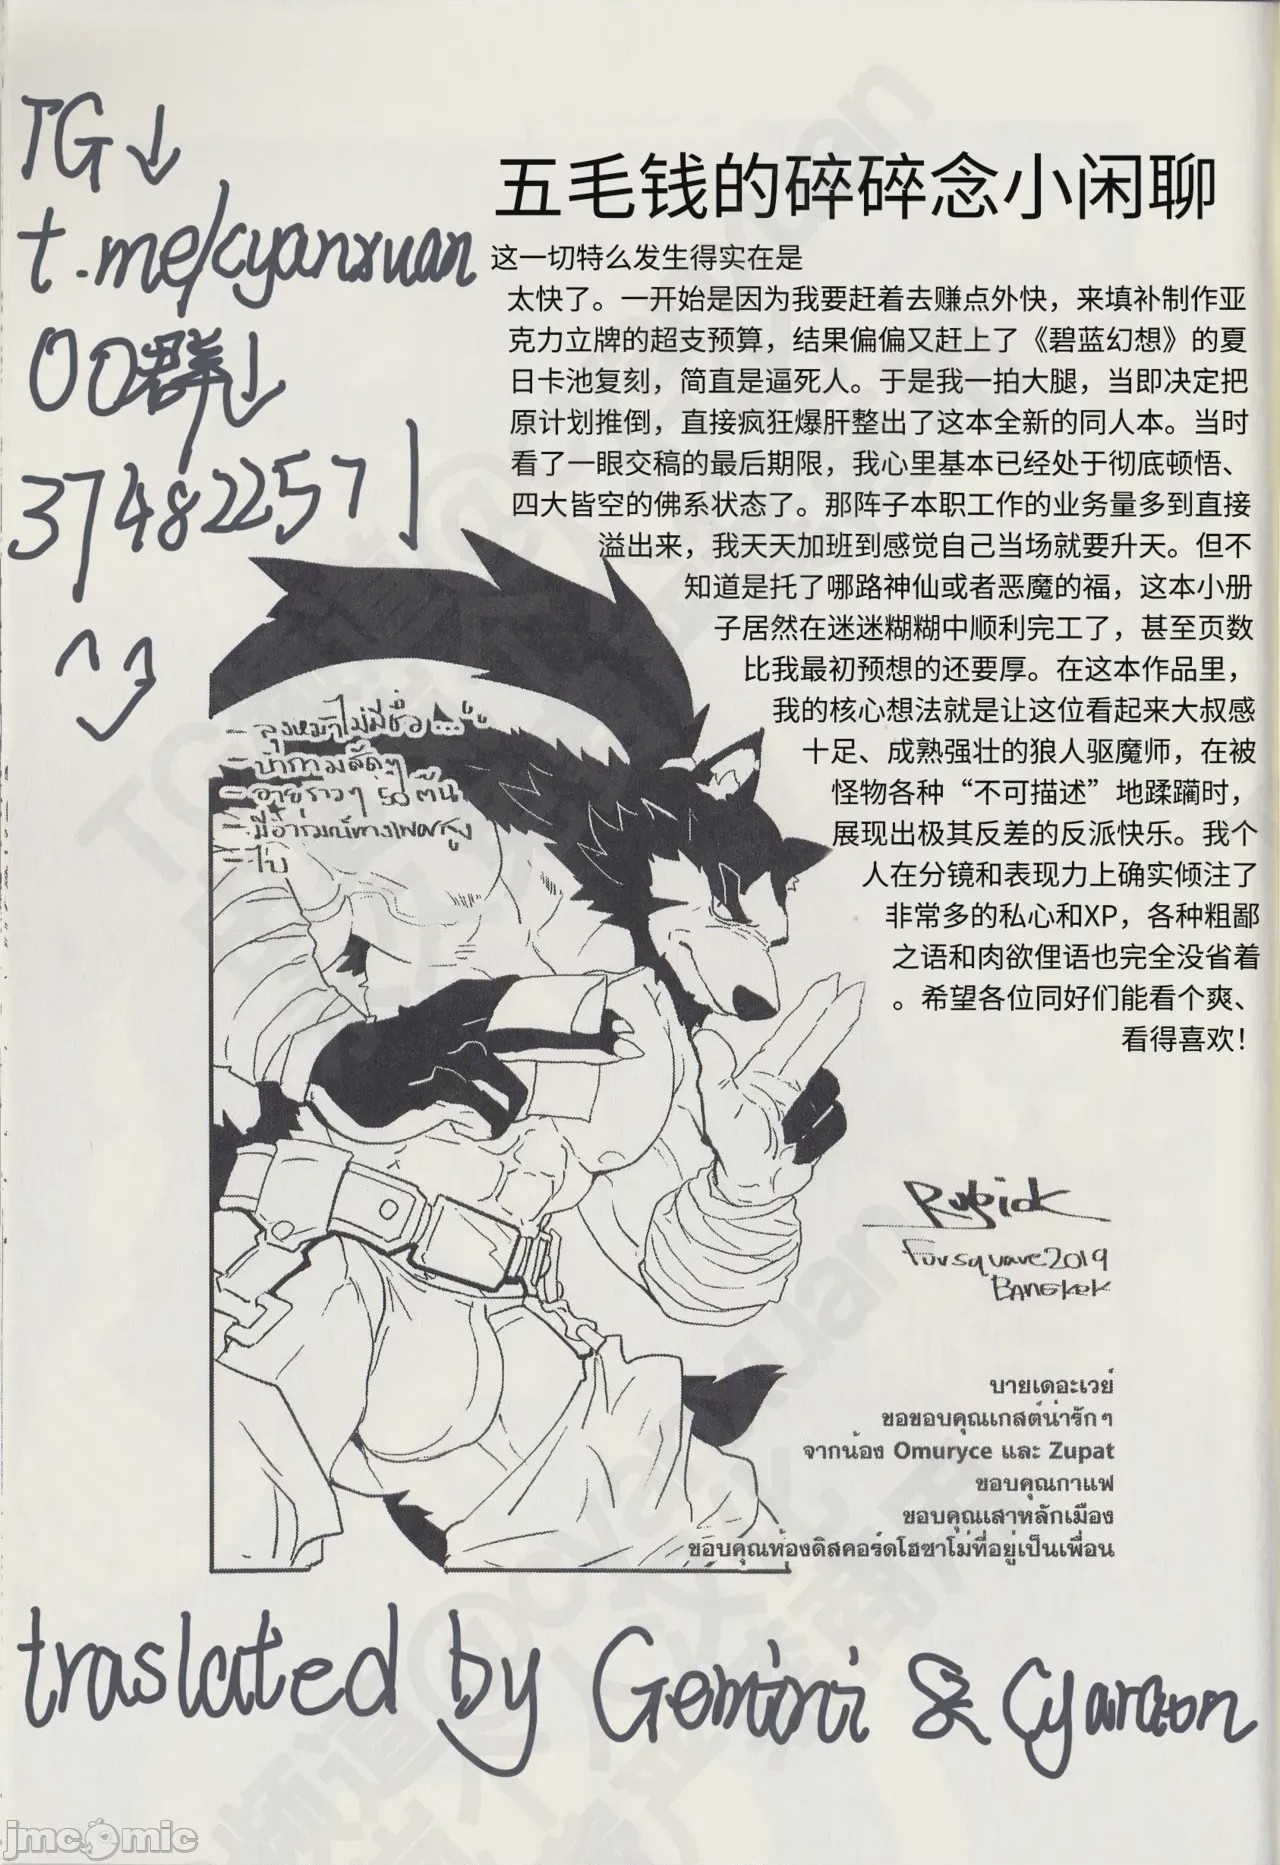 TG↓
t.me/cyanxuan
QQ群↓
374822571
五毛钱的碎碎念小闲聊
这一切特么发生得实在是
太快了。一开始是因为我要赶着去赚点外快，来填补制作亚
克力立牌的超支预算，结果偏偏又赶上了《碧蓝幻想》的夏
日卡池复刻，简直是逼死人。于是我一拍大腿，当即决定把
原计划推倒，直接疯狂爆肝整出了这本全新的同人本。当时
看了一眼交稿的最后期限，我心里基本已经处于彻底顿悟、
四大皆空的佛系状态了。那阵子本职工作的业务量多到直接
溢出来，我天天加班到感觉自己当场就要升天。但不
知道是托了哪路神仙或者恶魔的福，这本小册
子居然在迷迷糊糊中顺利完工了，甚至页数
比我最初预想的还要厚。在这本作品里，
我的核心想法就是让这位看起来大叔感
十足、成熟强壮的狼人驱魔师，在被
怪物各种“不可描述”地蹂躏时，
展现出极其反差的反派快乐。我个
人在分镜和表现力上确实倾注了
非常多的私心和XP，各种粗鄙
之语和肉欲俚语也完全没省着
。希望各位同好们能看个爽、
看得喜欢！
- ลุงหมาไม่มีชื่อ...
- บ้ากามสัดๆ
- อายุราวๆ 50 ต้น
- มีอารมณ์ทางเพศสูง
- ไบ
Rubick
Fursquare2019
BANGKOK
บายเดอะเวย์
ขอขอบคุณเกสต์น่ารักๆ
จากน้อง Omuryce และ Zupat
ขอบคุณกาแฟ
ขอบคุณเสาหลักเมือง
ขอบคุณห้องดิสคอร์ดโฮซาโม่ที่อยู่เป็นเพื่อน
traslated by Gemini & Cyaraon
jmcomic